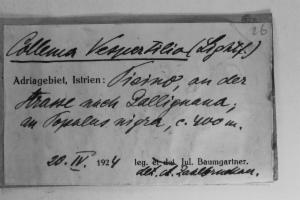 26
Collema Vespertilio (Lightf.)
Adriagebiet, Istrien: Pisino, an der
Strasse nach Gallignana,
an Populus nigra, c. 400 m.
20. IV. 1924 leg. et det. Jul. Baumgartner.
det. A. Zahlbruckner.